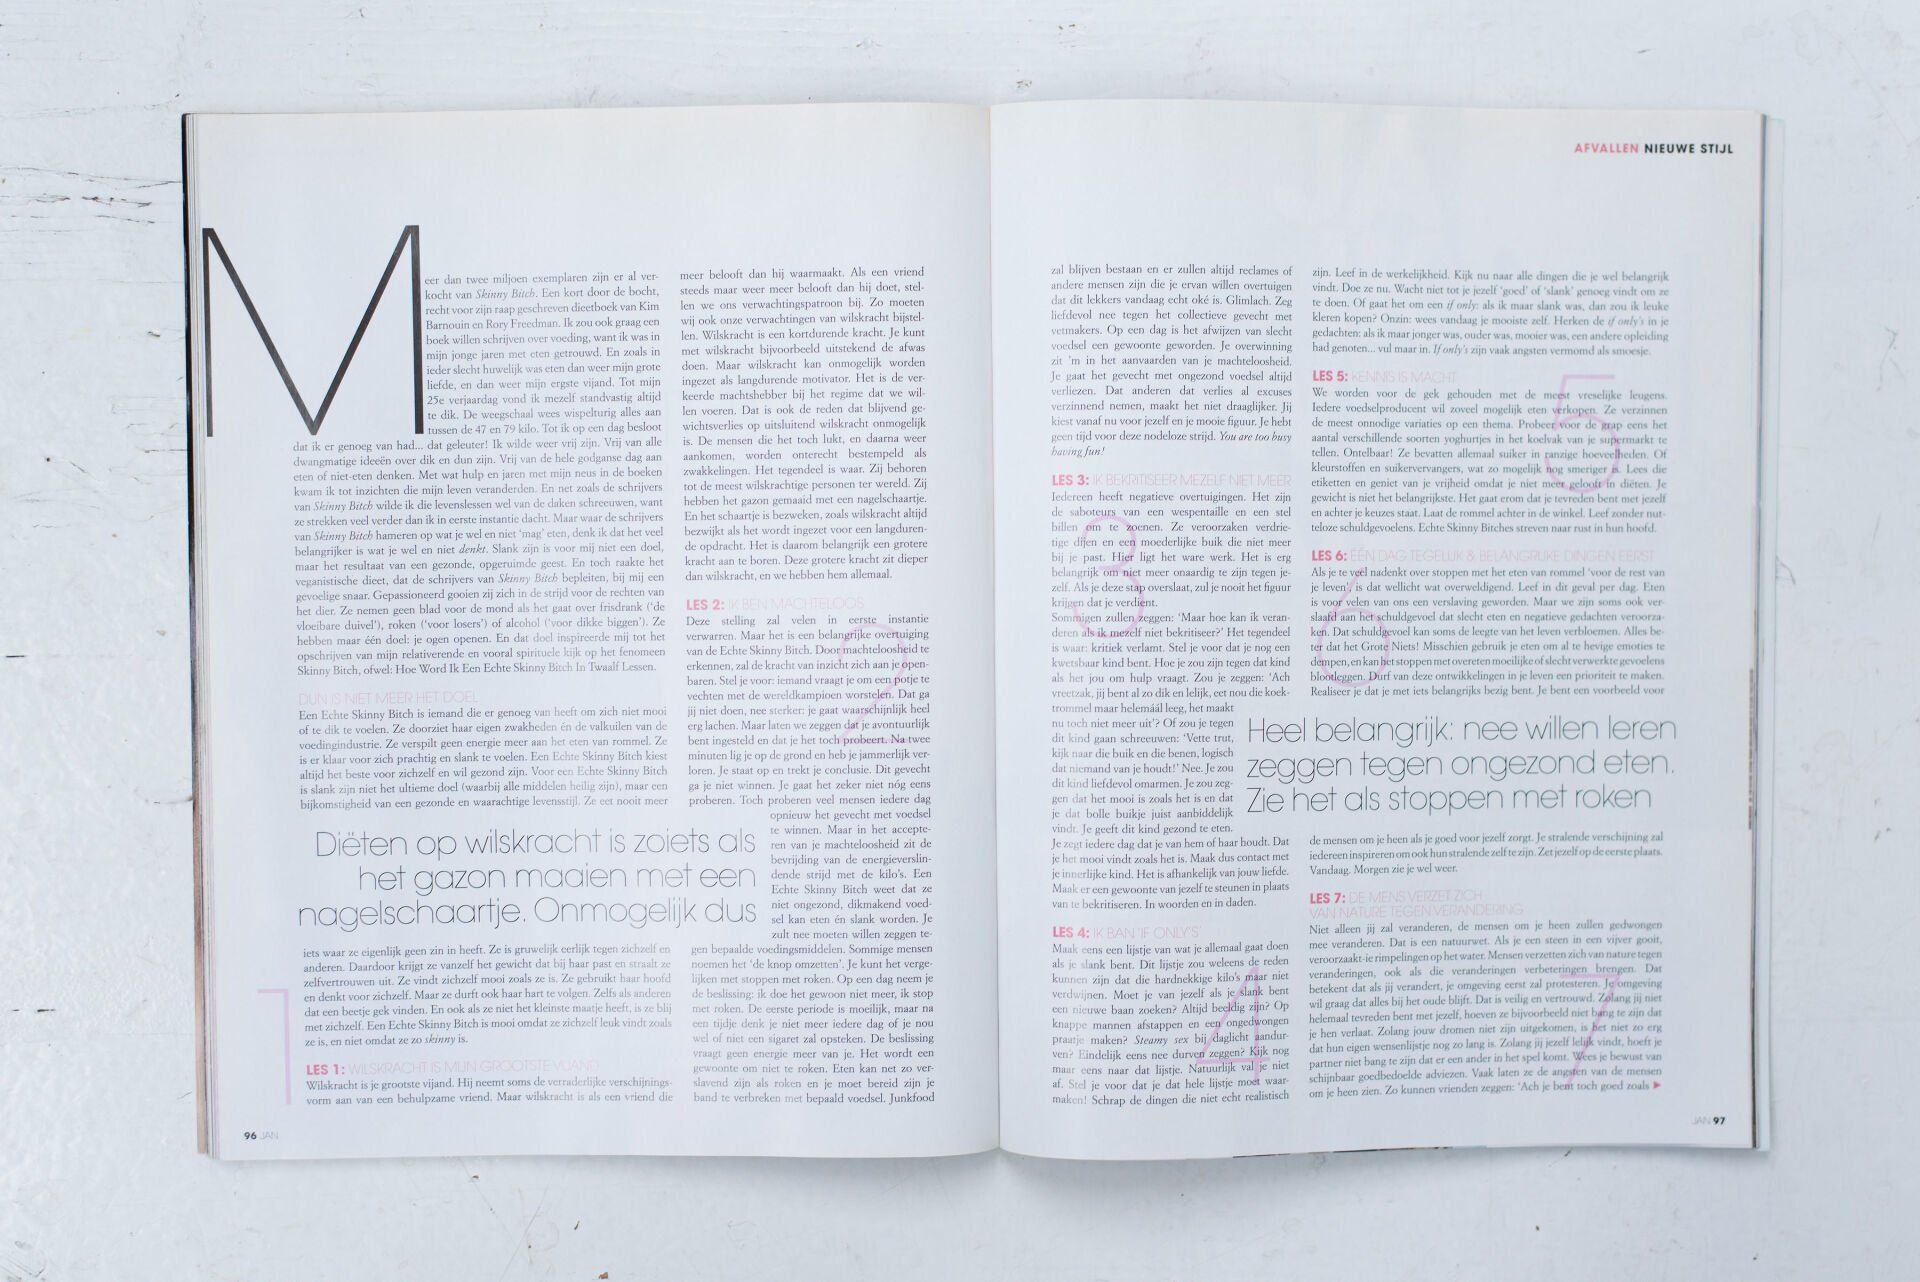 AFVALLEN NIEUWE STIJL
Meer dan twee miljoen exemplaren zijn er al ver-
kocht van Skinny Bitch. Een kort door de bocht,
recht voor zijn raap geschreven dieetboek van Kim
Barnouin en Rory Freedman. Ik zou ook graag een
boek willen schrijven over voeding, want ik was in
mijn jonge jaren met eten getrouwd. En zoals in
ieder slecht huwelijk was eten dan weer mijn grote
liefde, en dan weer mijn ergste vijand. Tot mijn
25e verjaardag vond ik mezelf standvastig altijd
te dik. De weegschaal wees wispelturig alles aan
tussen de 47 en 79 kilo. Tot ik op een dag besloot
dat ik er genoeg van had... dat geleuter! Ik wilde weer vrij zijn. Vrij van alle
dwangmatige ideeën over dik en dun zijn. Vrij van de hele godganse dag aan
eten of niet-eten denken. Met wat hulp en jaren met mijn neus in de boeken
kwam ik tot inzichten die mijn leven veranderden. En net zoals de schrijvers
van Skinny Bitch wilde ik die levenslessen wel van de daken schreeuwen, want
ze strekken veel verder dan ik in eerste instantie dacht. Maar waar de schrijvers
van Skinny Bitch hameren op wat je wel en niet 'mag' eten, denk ik dat het veel
belangrijker is wat je wel en niet denkt. Slank zijn is voor mij niet een doel,
maar het resultaat van een gezonde, opgeruimde geest. En toch raakte het
veganistische dieet, dat de schrijvers van Skinny Bitch bepleiten, bij mij een
gevoelige snaar. Gepassioneerd gooien zij zich in de strijd voor de rechten van
het dier. Ze nemen geen blad voor de mond als het gaat over frisdrank ('de
vloeibare duivel'), roken ('voor losers') of alcohol ('voor dikke biggen'). Ze
hebben maar één doel: je ogen openen. En dat doel inspireerde mij tot het
opschrijven van mijn relativerende en vooral spirituele kijk op het fenomeen
Skinny Bitch, ofwel: Hoe Word Ik Een Echte Skinny Bitch In Twaalf Lessen.
DUN IS NIET MEER HET DOEL
Een Echte Skinny Bitch is iemand die er genoeg van heeft om zich niet mooi
of te dik te voelen. Ze doorziet haar eigen zwakheden én de valkuilen van de
voedingindustrie. Ze verspilt geen energie meer aan het eten van rommel. Ze
is er klaar voor zich prachtig en slank te voelen. Een Echte Skinny Bitch kiest
altijd het beste voor zichzelf en wil gezond zijn. Voor een Echte Skinny Bitch
is slank zijn niet het ultieme doel (waarbij alle middelen heilig zijn), maar een
bijkomstigheid van een gezonde en waarachtige levensstijl. Ze eet nooit meer
Diëten op wilskracht is zoiets als
het gazon maaien met een
nagelschaartje. Onmogelijk dus
iets waar ze eigenlijk geen zin in heeft. Ze is gruwelijk eerlijk tegen zichzelf en
anderen. Daardoor krijgt ze vanzelf het gewicht dat bij haar past en straalt ze
zelfvertrouwen uit. Ze vindt zichzelf mooi zoals ze is. Ze gebruikt haar hoofd
en denkt voor zichzelf. Maar ze durft ook haar hart te volgen. Zelfs als anderen
dat een beetje gek vinden. En ook als ze niet het kleinste maatje heeft, is ze blij
met zichzelf. Een Echte Skinny Bitch is mooi omdat ze zichzelf leuk vindt zoals
ze is, en niet omdat ze zo skinny is.
1
LES 1: WILSKRACHT IS MIJN GROOTSTE VIJAND
Wilskracht is je grootste vijand. Hij neemt soms de verraderlijke verschijnings-
vorm aan van een behulpzame vriend. Maar wilskracht is als een vriend die
meer belooft dan hij waarmaakt. Als een vriend
steeds maar weer meer belooft dan hij doet, stel-
len we ons verwachtingspatroon bij. Zo moeten
wij ook onze verwachtingen van wilskracht bijstel-
len. Wilskracht is een kortdurende kracht. Je kunt
met wilskracht bijvoorbeeld uitstekend de afwas
doen. Maar wilskracht kan onmogelijk worden
ingezet als langdurende motivator. Het is de ver-
keerde machtshebber bij het regime dat we wil-
len voeren. Dat is ook de reden dat blijvend ge-
wichtsverlies op uitsluitend wilskracht onmogelijk
is. De mensen die het toch lukt, en daarna weer
aankomen, worden onterecht bestempeld als
zwakkelingen. Het tegendeel is waar. Zij behoren
tot de meest wilskrachtige personen ter wereld. Zij
hebben het gazon gemaaid met een nagelschaartje.
En het schaartje is bezweken, zoals wilskracht altijd
bezwijkt als het wordt ingezet voor een langduren-
de opdracht. Het is daarom belangrijk een grotere
kracht aan te boren. Deze grotere kracht zit dieper
dan wilskracht, en we hebben hem allemaal.
2
LES 2: IK BEN MACHTELOOS
Deze stelling zal velen in eerste instantie
verwarren. Maar het is een belangrijke overtuiging
van de Echte Skinny Bitch. Door machteloosheid te
erkennen, zal de kracht van inzicht zich aan je open-
baren. Stel je voor: iemand vraagt je om een potje te
vechten met de wereldkampioen worstelen. Dat ga
jij niet doen, nee sterker: je gaat waarschijnlijk heel
erg lachen. Maar laten we zeggen dat je avontuurlijk
bent ingesteld en dat je het toch probeert. Na twee
minuten lig je op de grond en heb je jammerlijk ver-
loren. Je staat op en trekt je conclusie. Dit gevecht
ga je niet winnen. Je gaat het zeker niet nóg eens
proberen. Toch proberen veel mensen iedere dag
opnieuw het gevecht met voedsel
te winnen. Maar in het accepte-
ren van je machteloosheid zit de
bevrijding van de energieverslin-
dende strijd met de kilo's. Een
Echte Skinny Bitch weet dat ze
niet ongezond, dikmakend voed-
sel kan eten én slank worden. Je
zult nee moeten willen zeggen te-
gen bepaalde voedingsmiddelen. Sommige mensen
noemen het 'de knop omzetten'. Je kunt het verge-
lijken met stoppen met roken. Op een dag neem je
de beslissing: ik doe het gewoon niet meer, ik stop
met roken. De eerste periode is moeilijk, maar na
een tijdje denk je niet meer iedere dag of je nou
wel of niet een sigaret zal opsteken. De beslissing
vraagt geen energie meer van je. Het wordt een
gewoonte om niet te roken. Eten kan net zo ver-
slavend zijn als roken en je moet bereid zijn je
band te verbreken met bepaald voedsel. Junkfood
96 JAN
zal blijven bestaan en er zullen altijd reclames of
andere mensen zijn die je ervan willen overtuigen
dat dit lekkers vandaag echt oké is. Glimlach. Zeg
liefdevol nee tegen het collectieve gevecht met
vetmakers. Op een dag is het afwijzen van slecht
voedsel een gewoonte geworden. Je overwinning
zit 'm in het aanvaarden van je machteloosheid.
Je gaat het gevecht met ongezond voedsel altijd
verliezen. Dat anderen dat verlies al excuses
verzinnend nemen, maakt het niet draaglijker. Jij
kiest vanaf nu voor jezelf en je mooie figuur. Je hebt
geen tijd voor deze nodeloze strijd. You are too busy
having fun!
3
LES 3: IK BEKRITISEER MEZELF NIET MEER
Iedereen heeft negatieve overtuigingen. Het zijn
de saboteurs van een wespentaille en een stel
billen om te zoenen. Ze veroorzaken verdrie-
tige dijen en een moederlijke buik die niet meer
bij je past. Hier ligt het ware werk. Het is erg
belangrijk om niet meer onaardig te zijn tegen je-
zelf. Als je deze stap overslaat, zul je nooit het figuur
krijgen dat je verdient.
Sommigen zullen zeggen: 'Maar hoe kan ik veran-
deren als ik mezelf niet bekritiseer?' Het tegendeel
is waar: kritiek verlamt. Stel je voor dat je nog een
kwetsbaar kind bent. Hoe je zou zijn tegen dat kind
als het jou om hulp vraagt. Zou je zeggen: 'Ach
vreetzak, jij bent al zo dik en lelijk, eet nou die koek-
trommel maar helemáál leeg, het maakt
nu toch niet meer uit'? Of zou je tegen
dit kind gaan schreeuwen: 'Vette trut,
kijk naar die buik en die benen, logisch
dat niemand van je houdt!' Nee. Je zou
dit kind liefdevol omarmen. Je zou zeg-
gen dat het mooi is zoals het is en dat
je dat bolle buikje juist aanbiddelijk
vindt. Je geeft dit kind gezond te eten.
Je zegt iedere dag dat je van hem of haar houdt. Dat
je het mooi vindt zoals het is. Maak dus contact met
je innerlijke kind. Het is afhankelijk van jouw liefde.
Maak er een gewoonte van jezelf te steunen in plaats
van te bekritiseren. In woorden en in daden.
4
LES 4: IK BAN 'IF ONLY'S'
Maak eens een lijstje van wat je allemaal gaat doen
als je slank bent. Dit lijstje zou weleens de reden
kunnen zijn dat die hardnekkige kilo's maar niet
verdwijnen. Moet je van jezelf als je slank bent
een nieuwe baan zoeken? Altijd beeldig zijn? Op
knappe mannen afstappen en een ongedwongen
praatje maken? Steamy sex bij daglicht aandur-
ven? Eindelijk eens nee durven zeggen? Kijk nog
maar eens naar dat lijstje. Natuurlijk val je niet
af. Stel je voor dat je dat hele lijstje moet waar-
maken! Schrap de dingen die niet echt realistisch
zijn. Leef in de werkelijkheid. Kijk nu naar alle dingen die je wel belangrijk
vindt. Doe ze nu. Wacht niet tot je jezelf 'goed' of 'slank' genoeg vindt om ze
te doen. Of gaat het om een if only: als ik maar slank was, dan zou ik leuke
kleren kopen? Onzin: wees vandaag je mooiste zelf. Herken de if only's in je
gedachten: als ik maar jonger was, ouder was, mooier was, een andere opleiding
had genoten... vul maar in. If only's zijn vaak angsten vermomd als smoesje.
5
LES 5: KENNIS IS MACHT
We worden voor de gek gehouden met de meest vreselijke leugens.
Iedere voedselproducent wil zoveel mogelijk eten verkopen. Ze verzinnen
de meest onnodige variaties op een thema. Probeer voor de grap eens het
aantal verschillende soorten yoghurtjes in het koelvak van je supermarkt te
tellen. Ontelbaar! Ze bevatten allemaal suiker in ranzige hoeveelheden. Of
kleurstoffen en suikervervangers, wat zo mogelijk nog smeriger is. Lees die
etiketten en geniet van je vrijheid omdat je niet meer gelooft in diëten. Je
gewicht is niet het belangrijkste. Het gaat erom dat je tevreden bent met jezelf
en achter je keuzes staat. Laat de rommel achter in de winkel. Leef zonder nut-
teloze schuldgevoelens. Echte Skinny Bitches streven naar rust in hun hoofd.
6
LES 6: ÉÉN DAG TEGELIJK & BELANGRIJKE DINGEN EERST
Als je te veel nadenkt over stoppen met het eten van rommel 'voor de rest van
je leven' is dat wellicht wat overweldigend. Leef in dit geval per dag. Eten
is voor velen van ons een verslaving geworden. Maar we zijn soms ook ver-
slaafd aan het schuldgevoel dat slecht eten en negatieve gedachten veroorza-
ken. Dat schuldgevoel kan soms de leegte van het leven verbloemen. Alles be-
ter dat het Grote Niets! Misschien gebruik je eten om al te hevige emoties te
dempen, en kan het stoppen met overeten moeilijke of slecht verwerkte gevoelens
blootleggen. Durf van deze ontwikkelingen in je leven een prioriteit te maken.
Realiseer je dat je met iets belangrijks bezig bent. Je bent een voorbeeld voor
Heel belangrijk: nee willen leren
zeggen tegen ongezond eten.
Zie het als stoppen met roken
de mensen om je heen als je goed voor jezelf zorgt. Je stralende verschijning zal
iedereen inspireren om ook hun stralende zelf te zijn. Zet jezelf op de eerste plaats.
Vandaag. Morgen zie je wel weer.
7
LES 7: DE MENS VERZET ZICH
VAN NATURE TEGEN VERANDERING
Niet alleen jij zal veranderen, de mensen om je heen zullen gedwongen
mee veranderen. Dat is een natuurwet. Als je een steen in een vijver gooit,
veroorzaakt-ie rimpelingen op het water. Mensen verzetten zich van nature tegen
veranderingen, ook als die veranderingen verbeteringen brengen. Dat
betekent dat als jij verandert, je omgeving eerst zal protesteren. Je omgeving
wil graag dat alles bij het oude blijft. Dat is veilig en vertrouwd. Zolang jij niet
helemaal tevreden bent met jezelf, hoeven ze bijvoorbeeld niet bang te zijn dat
je hen verlaat. Zolang jouw dromen niet zijn uitgekomen, is het niet zo erg
dat hun eigen wensenlijstje nog zo lang is. Zolang jij jezelf lelijk vindt, hoeft je
partner niet bang te zijn dat er een ander in het spel komt. Wees je bewust van
schijnbaar goedbedoelde adviezen. Vaak laten ze de angsten van de mensen
om je heen zien. Zo kunnen vrienden zeggen: 'Ach je bent toch goed zoals ►
JAN 97